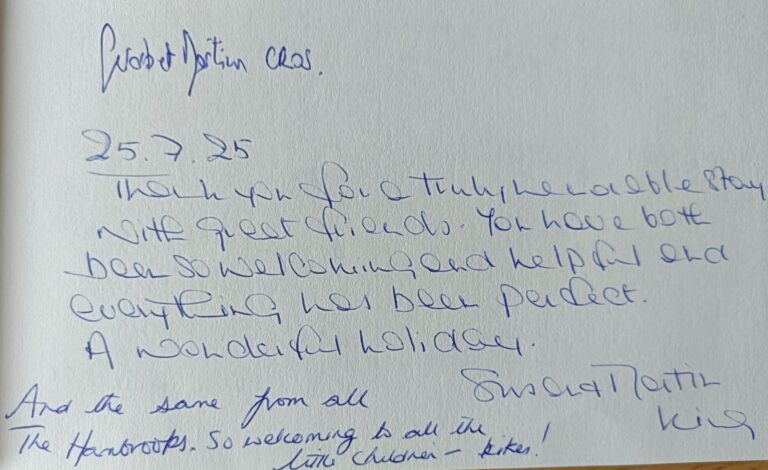 Martin CROS.
25.7.25
Thank you for a truly memorable stay
with great friends. You have both
been so welcoming and helpful and
everything has been perfect.
A wonderful holiday.
Susan + Martin
King
And the same from all
The Hambrooks. So welcoming to all the
little children - bikes!